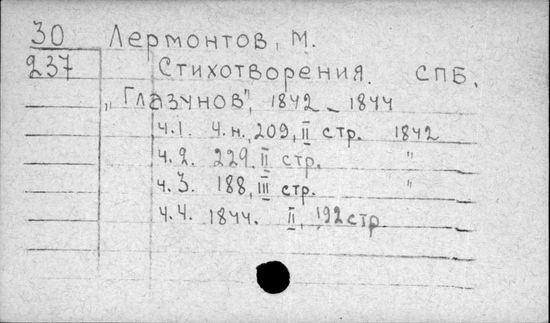 30 Лермонтов, М.
237 Стихотворения. СПБ.
„Глазунов", 1842 - 1844
ч.1. 4 н., 209, II стр. 1842
ч.2. 229. II стр. "
ч.3. 188, III стр. "
ч.4. 1844. II, 192 стр.